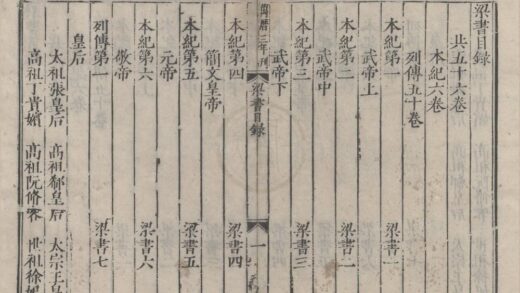 梁書目録
共五十六卷
本紀六卷
列傳五十卷
本紀第一 梁書一
武帝上
本紀第二 梁書二
武帝中
本紀第三 梁書三
武帝下
三年刊 梁書目録 一
本紀第四 梁書四
簡文皇帝
本紀第五 梁書五
元帝
本紀第六 梁書六
敬帝
列傳第一 梁書七
皇后
太祖張皇后 高祖郗皇后 太宗王皇
高祖丁貴嬪 高祖阮脩容 世祖徐